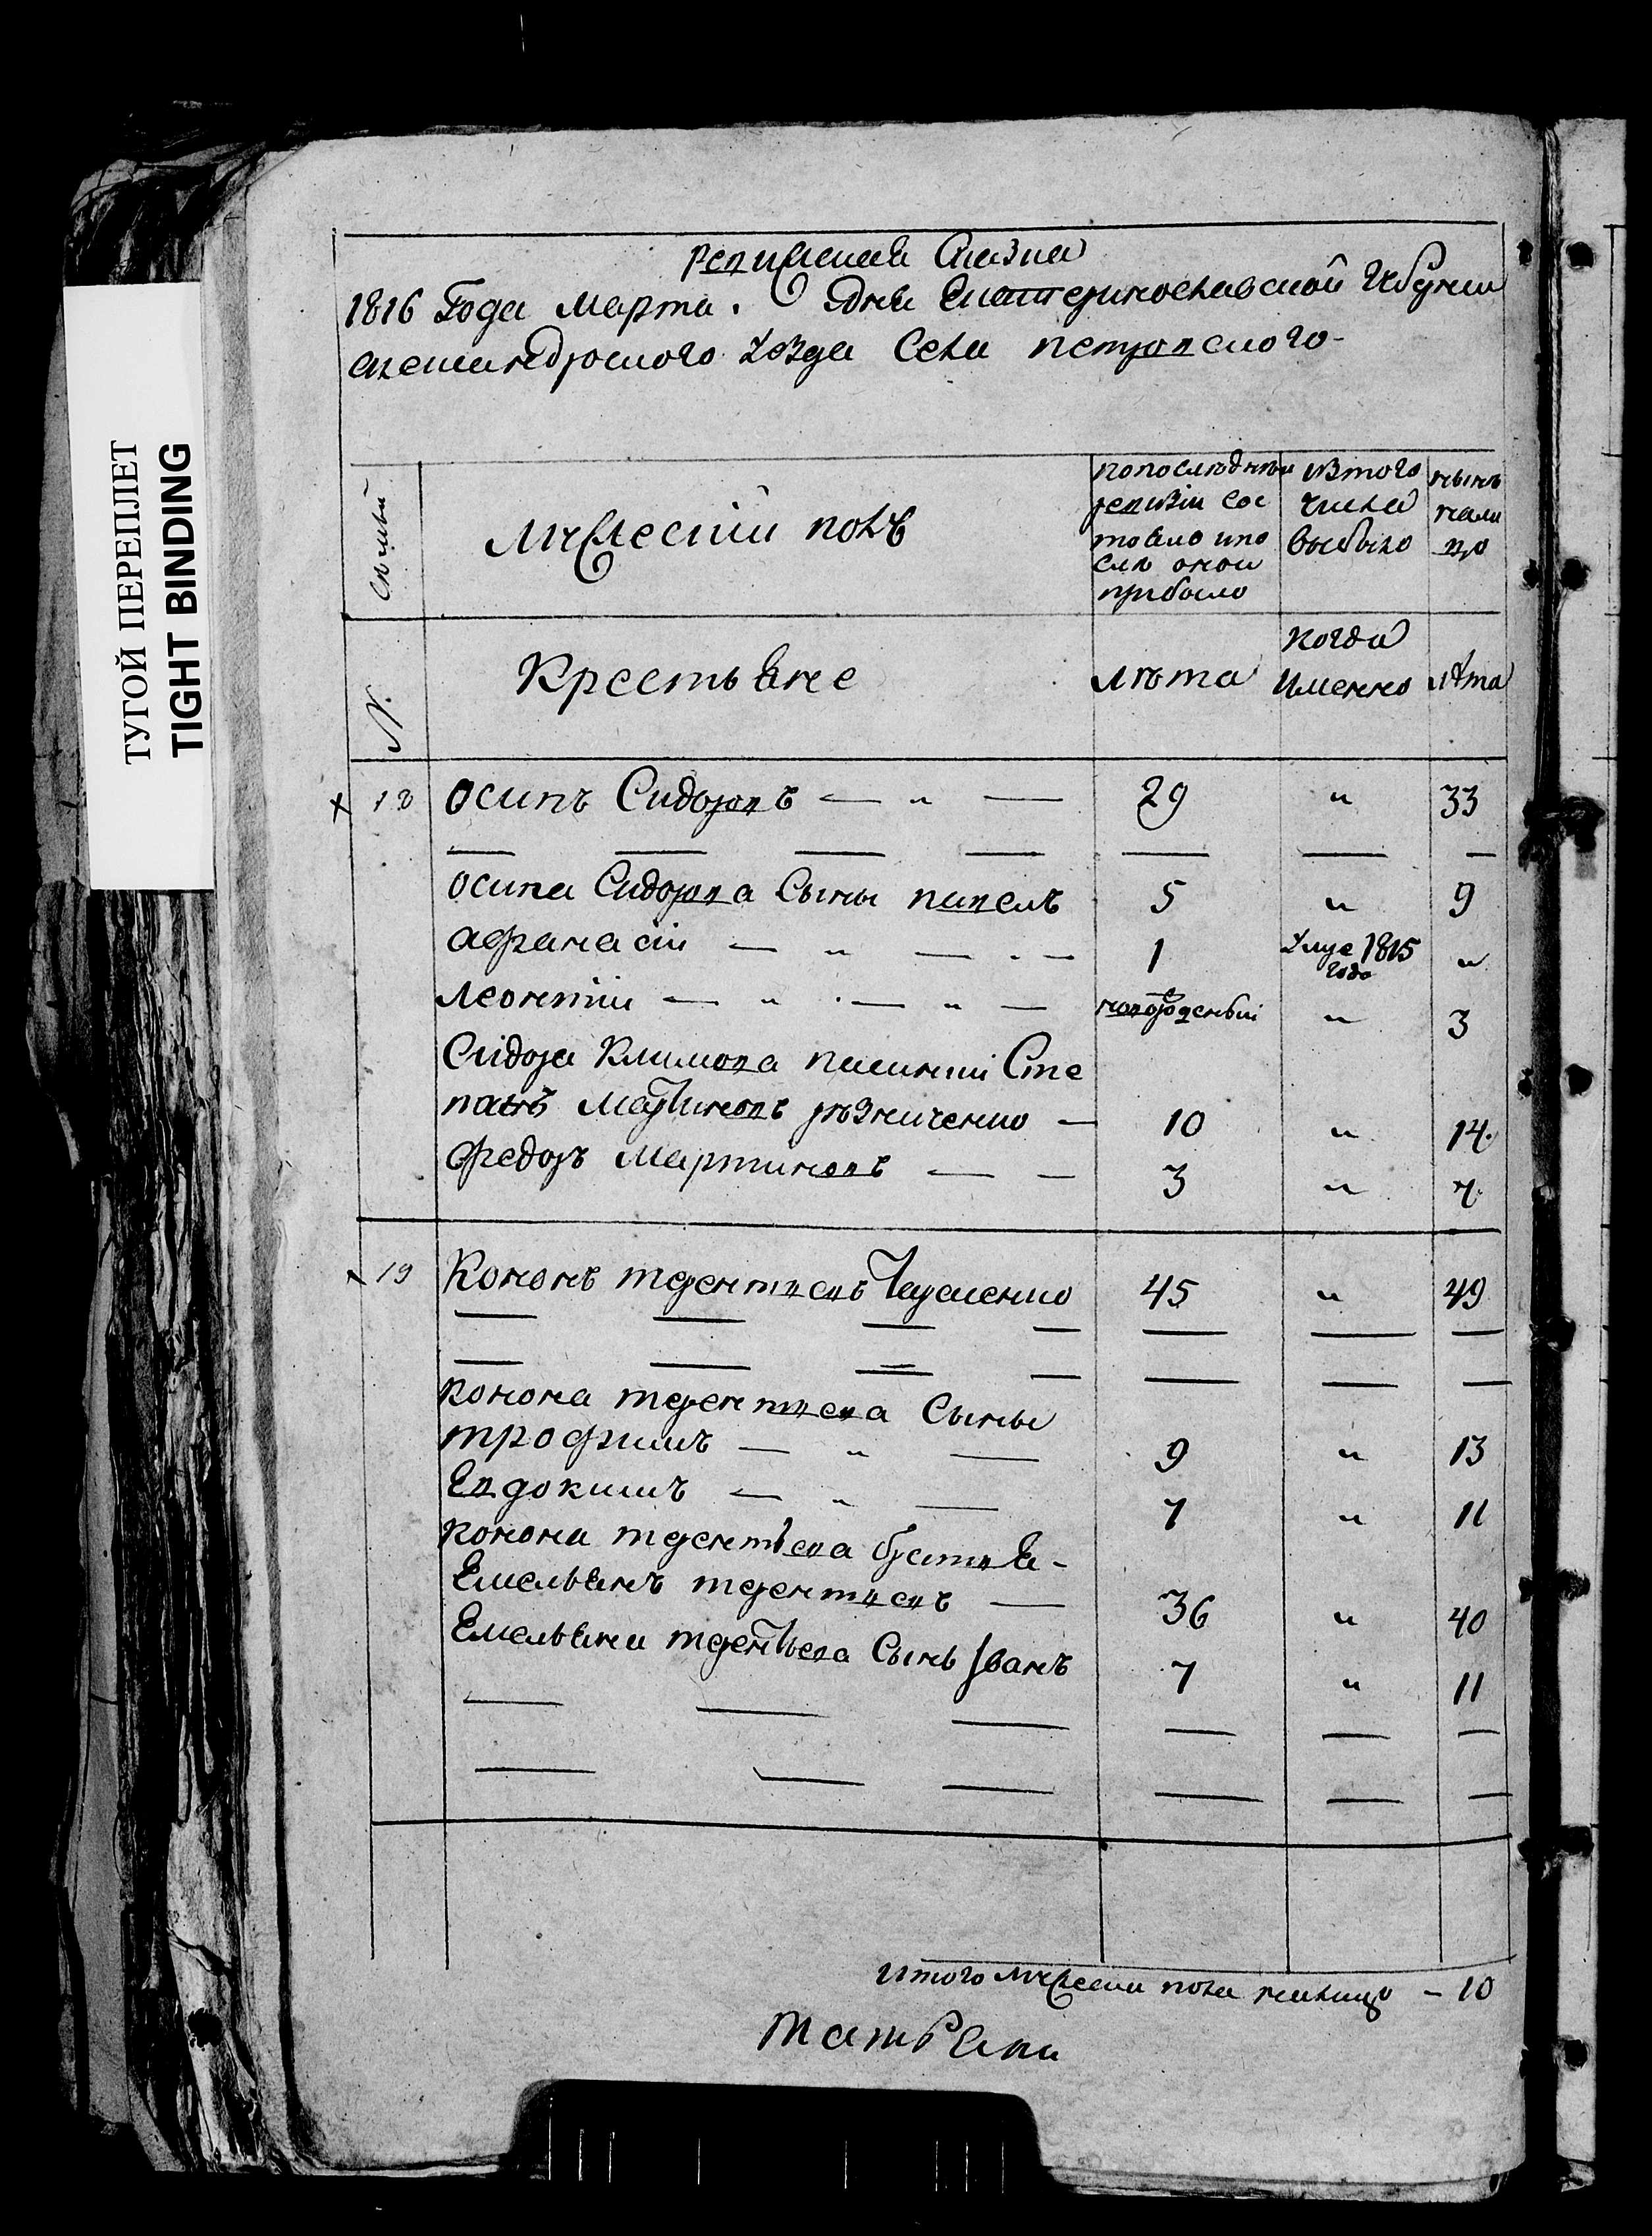 ТУГОЙ ПЕРЕПЛЕТ
TIGHT BINDING
Ревижская Сказка
1816 Года марта . дня Екатеринославской Губернии
александровского уезда Села петровского
семьи
Мужеский полъ
попоследней ревизии состояло ипосле оной прибыло
изтого числа выбыло
ныне налицо
№.
Крестьяне
лета
когда именно
лета
18 осипъ Сидоровъ — „ — 29 „ 33
осипа Сидорова Сыны павелъ 5 „ 9
афанасій — „ — 1 умре 1815 года „
леонтій — „ — „ — новорожденный „ 3
Сидора Климова пасинки Сте
панъ мартиновъ резниченко — 10 „ 14
федоръ мартиновъ — — 3 „ 7
19 Кононъ терентиевъ 45 „ 49
конона терентиева Сыны
трофимъ — „ — 9 „ 13
Евдокимъ — „ — 7 „ 11
конона терентьева братья
Емельянъ терентиевъ — 36 „ 40
Емельяна терентьева Сынъ Иванъ 7 „ 11
итого мужеска пола налицо – 10